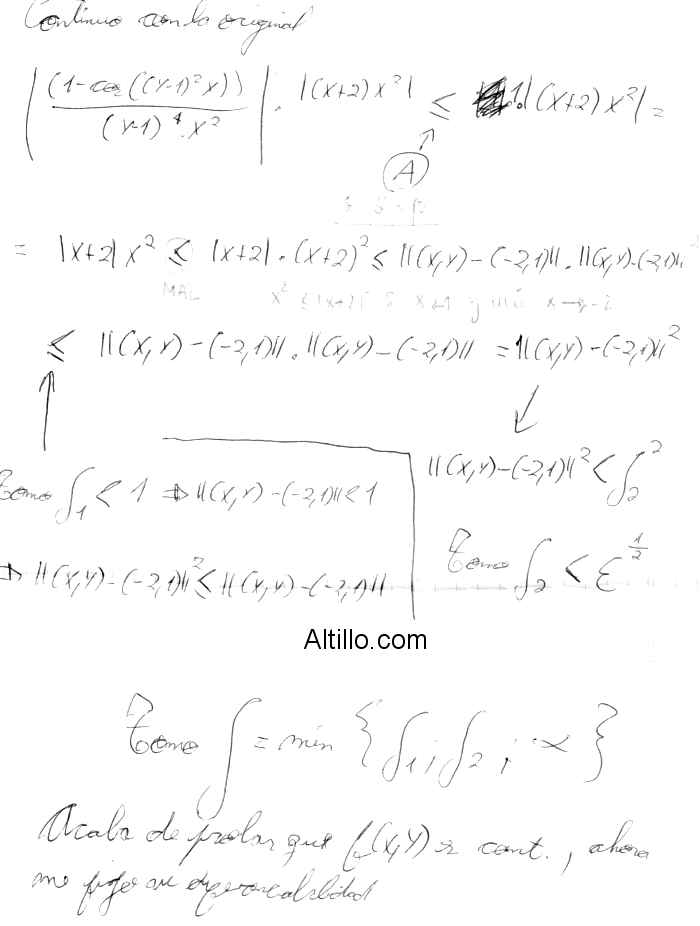 Continuo con la original
| (1-cos((y-1)²x)) / (y-1)⁴·x² | · |(x+2)x²| ≤ 1·|(x+2)x²| =
A
= |x+2| x² ≤ |x+2|·(x+2)² ≤ ||(x,y)-(-2,1)||·||(x,y)-(-2,1)||²
MAL x² ≤ |x+2|² x→-2
≤ ||(x,y)-(-2,1)||·||(x,y)-(-2,1)|| = ||(x,y)-(-2,1)||²
Tomo δ₁ < 1 ⇒ ||(x,y)-(-2,1)|| < 1
⇒ ||(x,y)-(-2,1)||² ≤ ||(x,y)-(-2,1)||
||(x,y)-(-2,1)||² < δ₂²
Tomo δ₂ < ε^{1/2}
Altillo.com
Tomo δ = min {δ₁; δ₂; α}
Acaba de probar que f(x,y) es cont., ahora
me fijo su diferenciabilidad